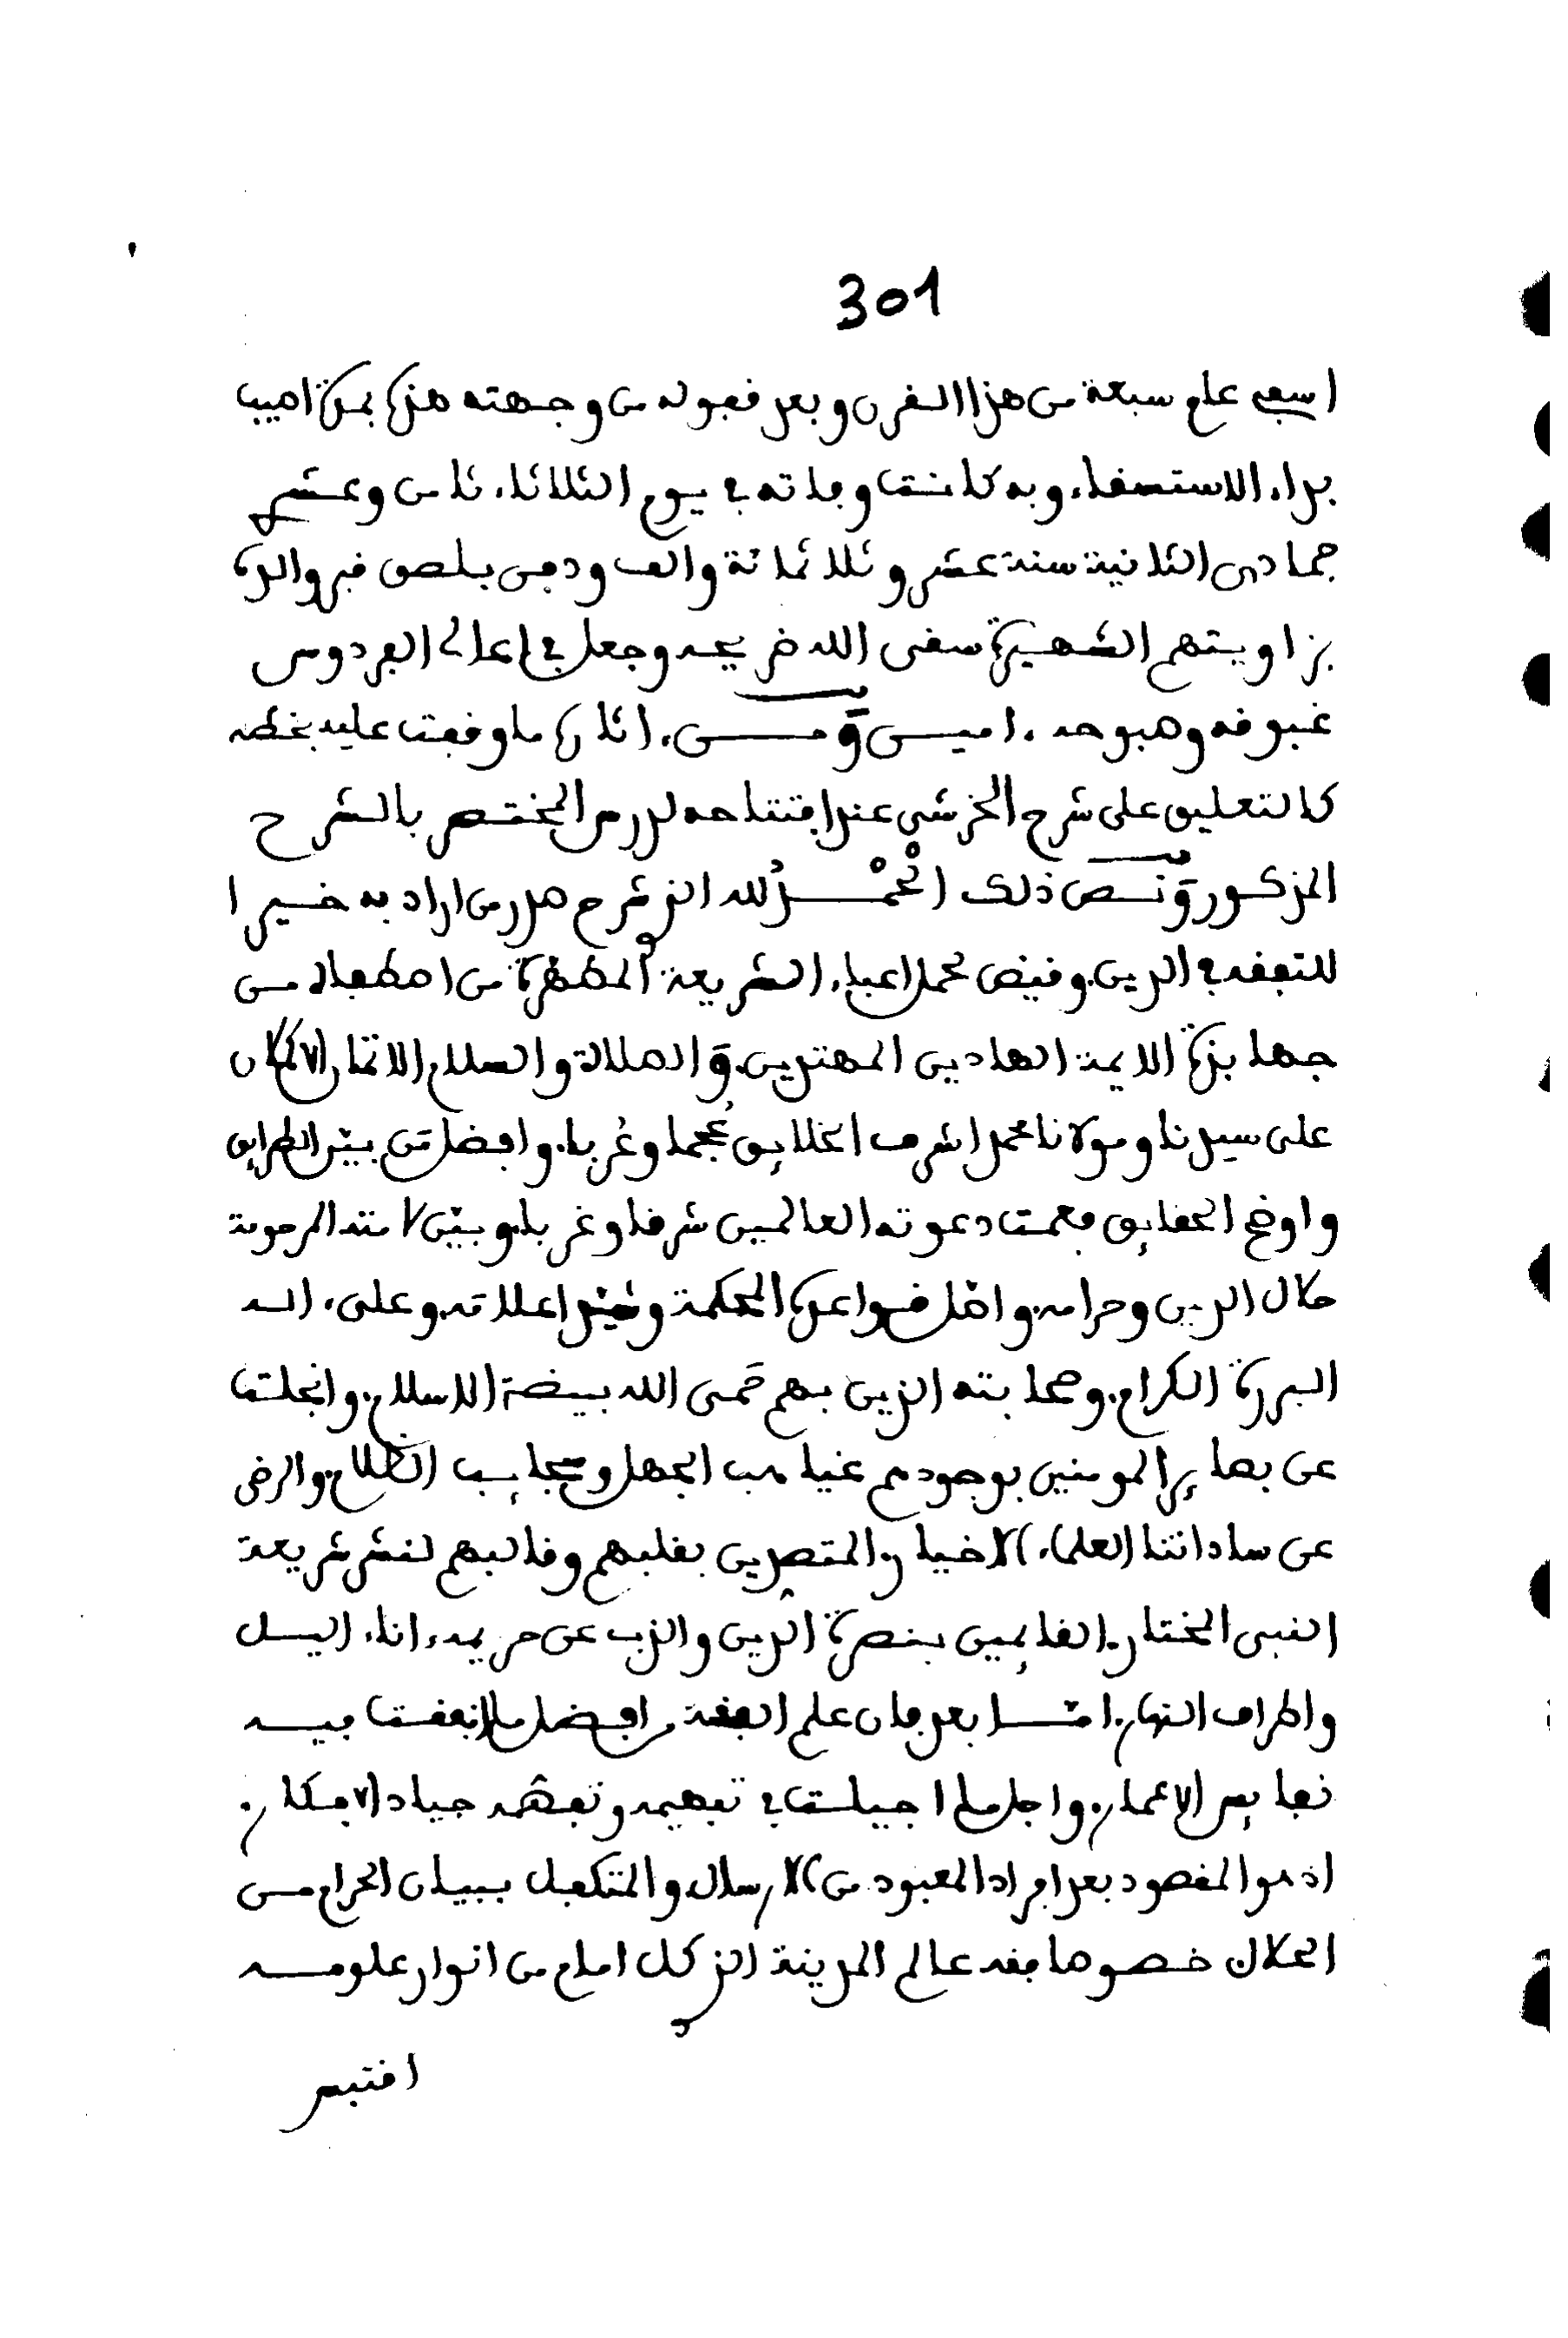 301
اسفى علم سبعة من هذا القرن وبعد قفوله من وجهته هذه بمدة اصيب
بداء الاستسقاء وبه كانت وفاته في يوم الثلاثاء ثامن وعشري
جمادى الثانية سنة عشر وثلاثمائة والف ودفن بلصق قبر والده
بزاويتهم الشهيرة سقى الله ضريحه وجعل في اعالي الفردوس
غبوقه وصبوحه ءامين ومن ءاثاره ما وقفت عليه بخطه
كالتعليق على شرح الخرشي عند افتتاحه لدرس المختصر بالشرح
المذكور ونص ذلك الحمد لله الذي شرح صدر من اراد به خيرا
للتفقه في الدين وقيض لحمل اعباء الشريعة المطهرة من اصطفاه من
جهابذة الايمة الهادين المهتدين والصلاة والسلام الاتمان الاكملان
على سيدنا ومولانا محمد اشرف الخلايق عجما وعربا وافضل من بين الطرايق
واوضح الحقايق فعمت دعوته العالمين شرقا وغربا وبين لامته المرحومة
حلال الدين وحرامه واصل قواعده المحكمة وشيد اعلامه وعلى ءاله
البررة الكرام وصحابته الذين بهم حمى الله بيضة الاسلام وانجلت
عن بصاير المومنين بوجودهم غياهب الجهل وسحايب الظلام والرضى
عن ساداتنا العلماء الاخيار المتصدين بقلبهم وقالبهم لنشر شريعة
النبي المختار القايمين بنصرة الدين والذب عن حريمه ءاناء اليل
واطراف النهار اما بعد فان علم الفقه افضل ما انفقت فيه
نفايس الاعمار واجل ما اجيلت في تفهيمه وتفهمه جياد الافكار
اذ هو المقصود بعد افراد المعبود من الارسال والمتكفل ببيان الحرام من
الحلال خصوصا فقه عالم المدينة الذي كل امام من انوار علومه
اقتبس